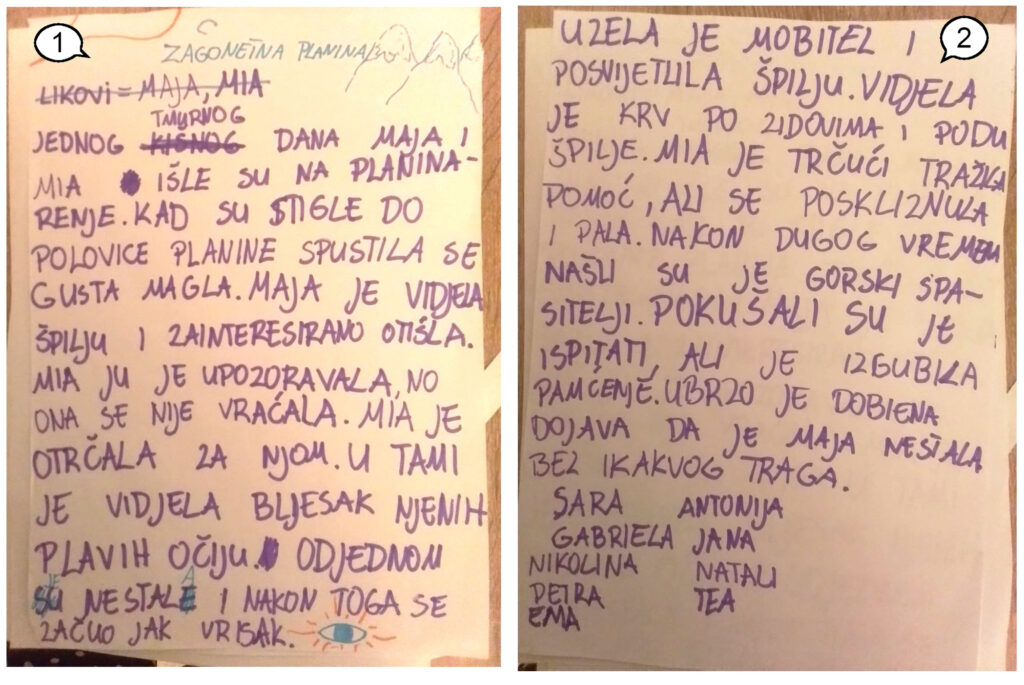 1
ZAGONETNA PLANINA
LIKOVI = MAJA, MIA
TMURNOG
JEDNOG KIŠNOG DANA MAJA I
MIA IŠLE SU NA PLANINA-
RENJE. KAD SU STIGLE DO
POLOVICE PLANINE SPUSTILA SE
GUSTA MAGLA. MAJA JE VIDJELA
ŠPILJU I ZAINTERESIRANO OTIŠLA.
MIA JU JE UPOZORAVALA, NO
ONA SE NIJE VRAĆALA. MIA JE
OTRČALA ZA NJOM. U TAMI
JE VIDJELA BLJESAK NJENIH
PLAVIH OČIJU. ODJEDNOM
JE NESTALA I NAKON TOGA SE
ZAČUO JAK VRISAK.
2
UZELA JE MOBITEL I
POSVIJETLILA ŠPILJU. VIDJELA
JE KRV PO ZIDOVIMA I PODU
ŠPILJE. MIA JE TRČUĆI TRAŽILA
POMOĆ, ALI SE POSKLIZNULA
I PALA. NAKON DUGOG VREMENA
NAŠLI SU JE GORSKI SPA-
SITELJI. POKUŠALI SU JE
ISPITATI, ALI JE IZGUBILA
PAMĆENJE. UBRZO JE DOBIENA
DOJAVA DA JE MAJA NESTALA
BEZ IKAKVOG TRAGA.
SARA ANTONIJA
GABRIELA JANA
NIKOLINA NATALI
PETRA TEA
EMA